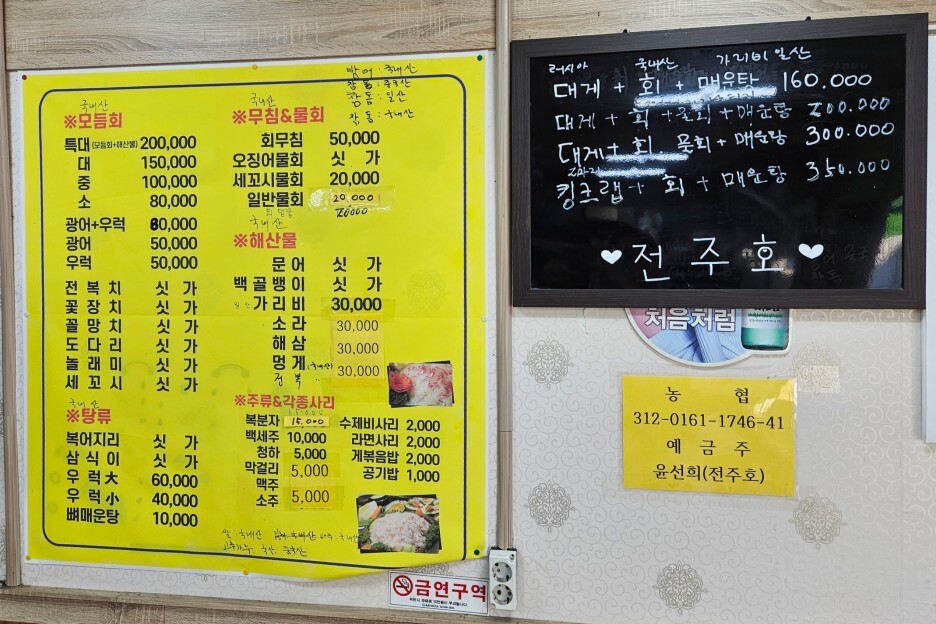 방어 : 국내산
참돔 : 중국산
참돔 : 일산
참돔 : 국내산
국내산
※모듬회
특대(모듬회+해산물) 200,000
대 150,000
중 100,000
소 80,000
광어+우럭 80,000
광어 50,000
우럭 50,000
전복치 싯가
꽃장치 싯가
꼴망치 싯가
도다리 싯가
놀래미 싯가
세꼬시 싯가
국내산
※탕류
복어지리 싯가
삼식이 싯가
우럭大 60,000
우럭小 40,000
뼈매운탕 10,000
국내산
※무침&물회
회무침 50,000
오징어물회 싯가
세꼬시물회 20,000
일반물회 20,000
20000
국내산
※해산물
문어 싯가
백골뱅이 싯가
일산 가리비 30,000
소라 30,000
해삼 30,000
멍게 (국내산) 30,000
전복
※주류&각종사리
15000
복분자 15,000
백세주 10,000
청하 5,000
막걸리 5,000
맥주
소주 5,000
수제비사리 2,000
라면사리 2,000
게볶음밥 2,000
공기밥 1,000
쌀 : 국내산 국내산
고추가루 중국산
금연구역
러시아 국내산 가리비 일산
대게 + 회 + 매운탕 160.000
대게 + 회 + 물회 + 매운탕 200.000
대게 + 회. 물회 + 매운탕 300.000
2마리
킹크랩 + 회 + 매운탕 350.000
♥ 전주호 ♥
처음처럼
농협
312-0161-1746-41
예금주
윤선희(전주호)